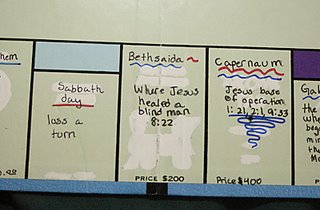 hem
.98
Sabbath
day
loss a
turn
Bethsaida
Where Jesus
healed a
blind man
8:22
PRICE $200
Capernaum
Jesus base
of operation
1:21, 2:1, 9:33
Price $400
Gal
the
wher
bega
min
the
Mo